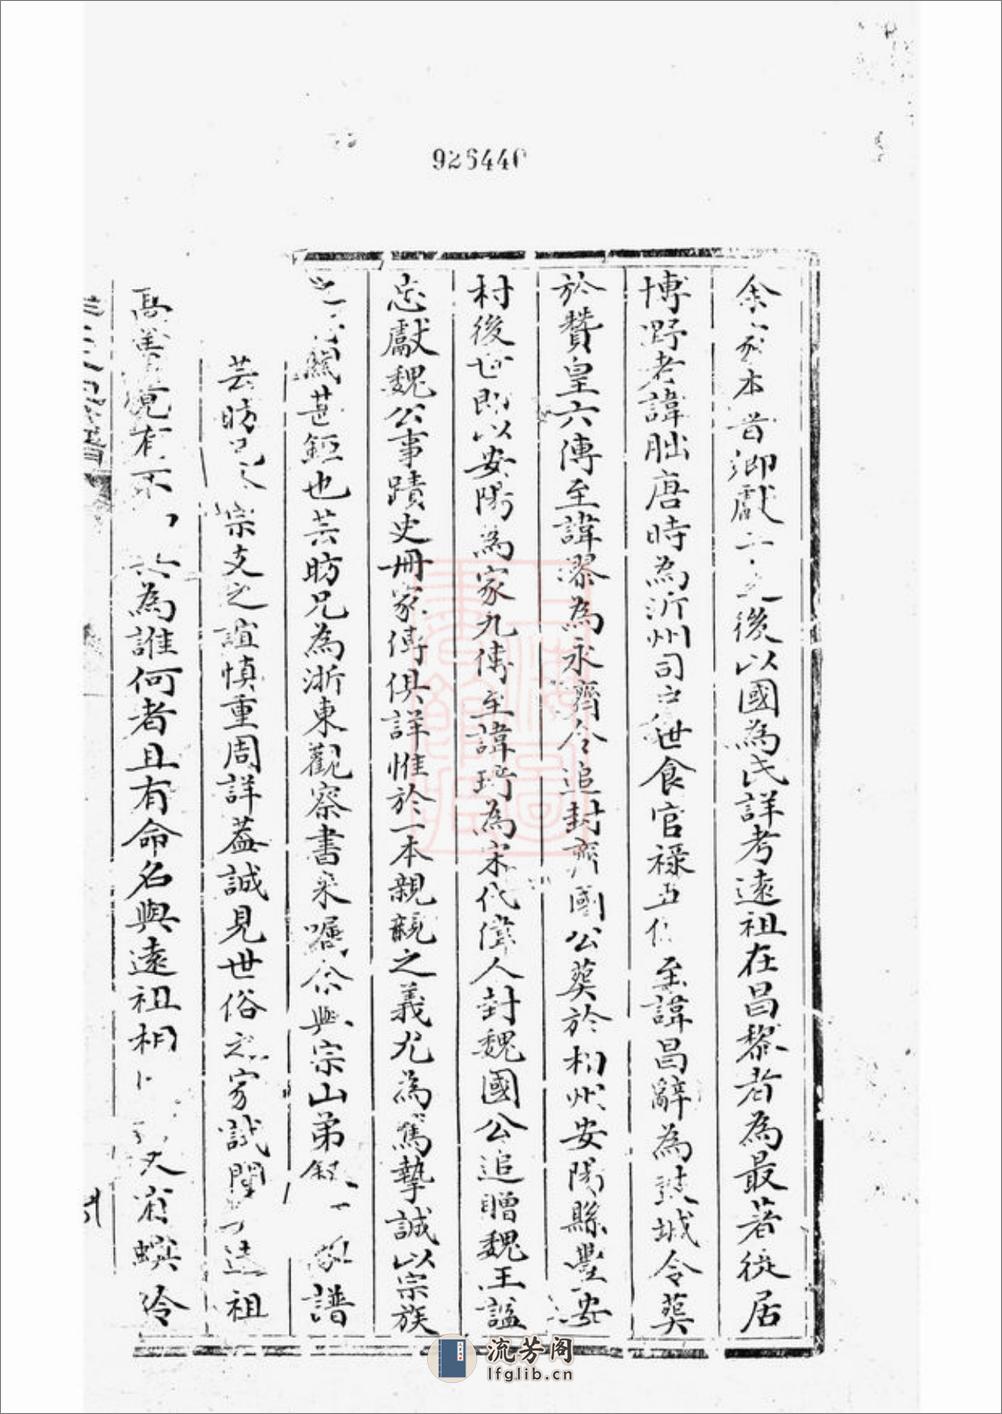 926440
余家本晉卿獻子之後以國為氏詳考遠祖在昌黎者為最著徙居
博野者諱朏唐時為沂州司戶世食官祿五傳至諱昌辭為鼓城令葬
於贊皇六傳至諱璆為永濟令追封齊國公葬於相州安陽縣豐安
村後世即以安陽為家九傳至諱琦為宋代偉人封魏國公追贈魏王諡
忠獻魏公事蹟史冊家傳俱詳惟於一本親親之義尤為篤摯誠以宗族
之 關甚鉅也芸昉兄為浙東觀察書來囑余與宗山弟敘 家譜
芸昉兄 宗支之誼慎重周詳蓋誠見世俗之家試問 遠祖
高曾竟有不 為誰何者且有命名與遠祖相 又有螟蛉
流芳阁
lfglib.cn